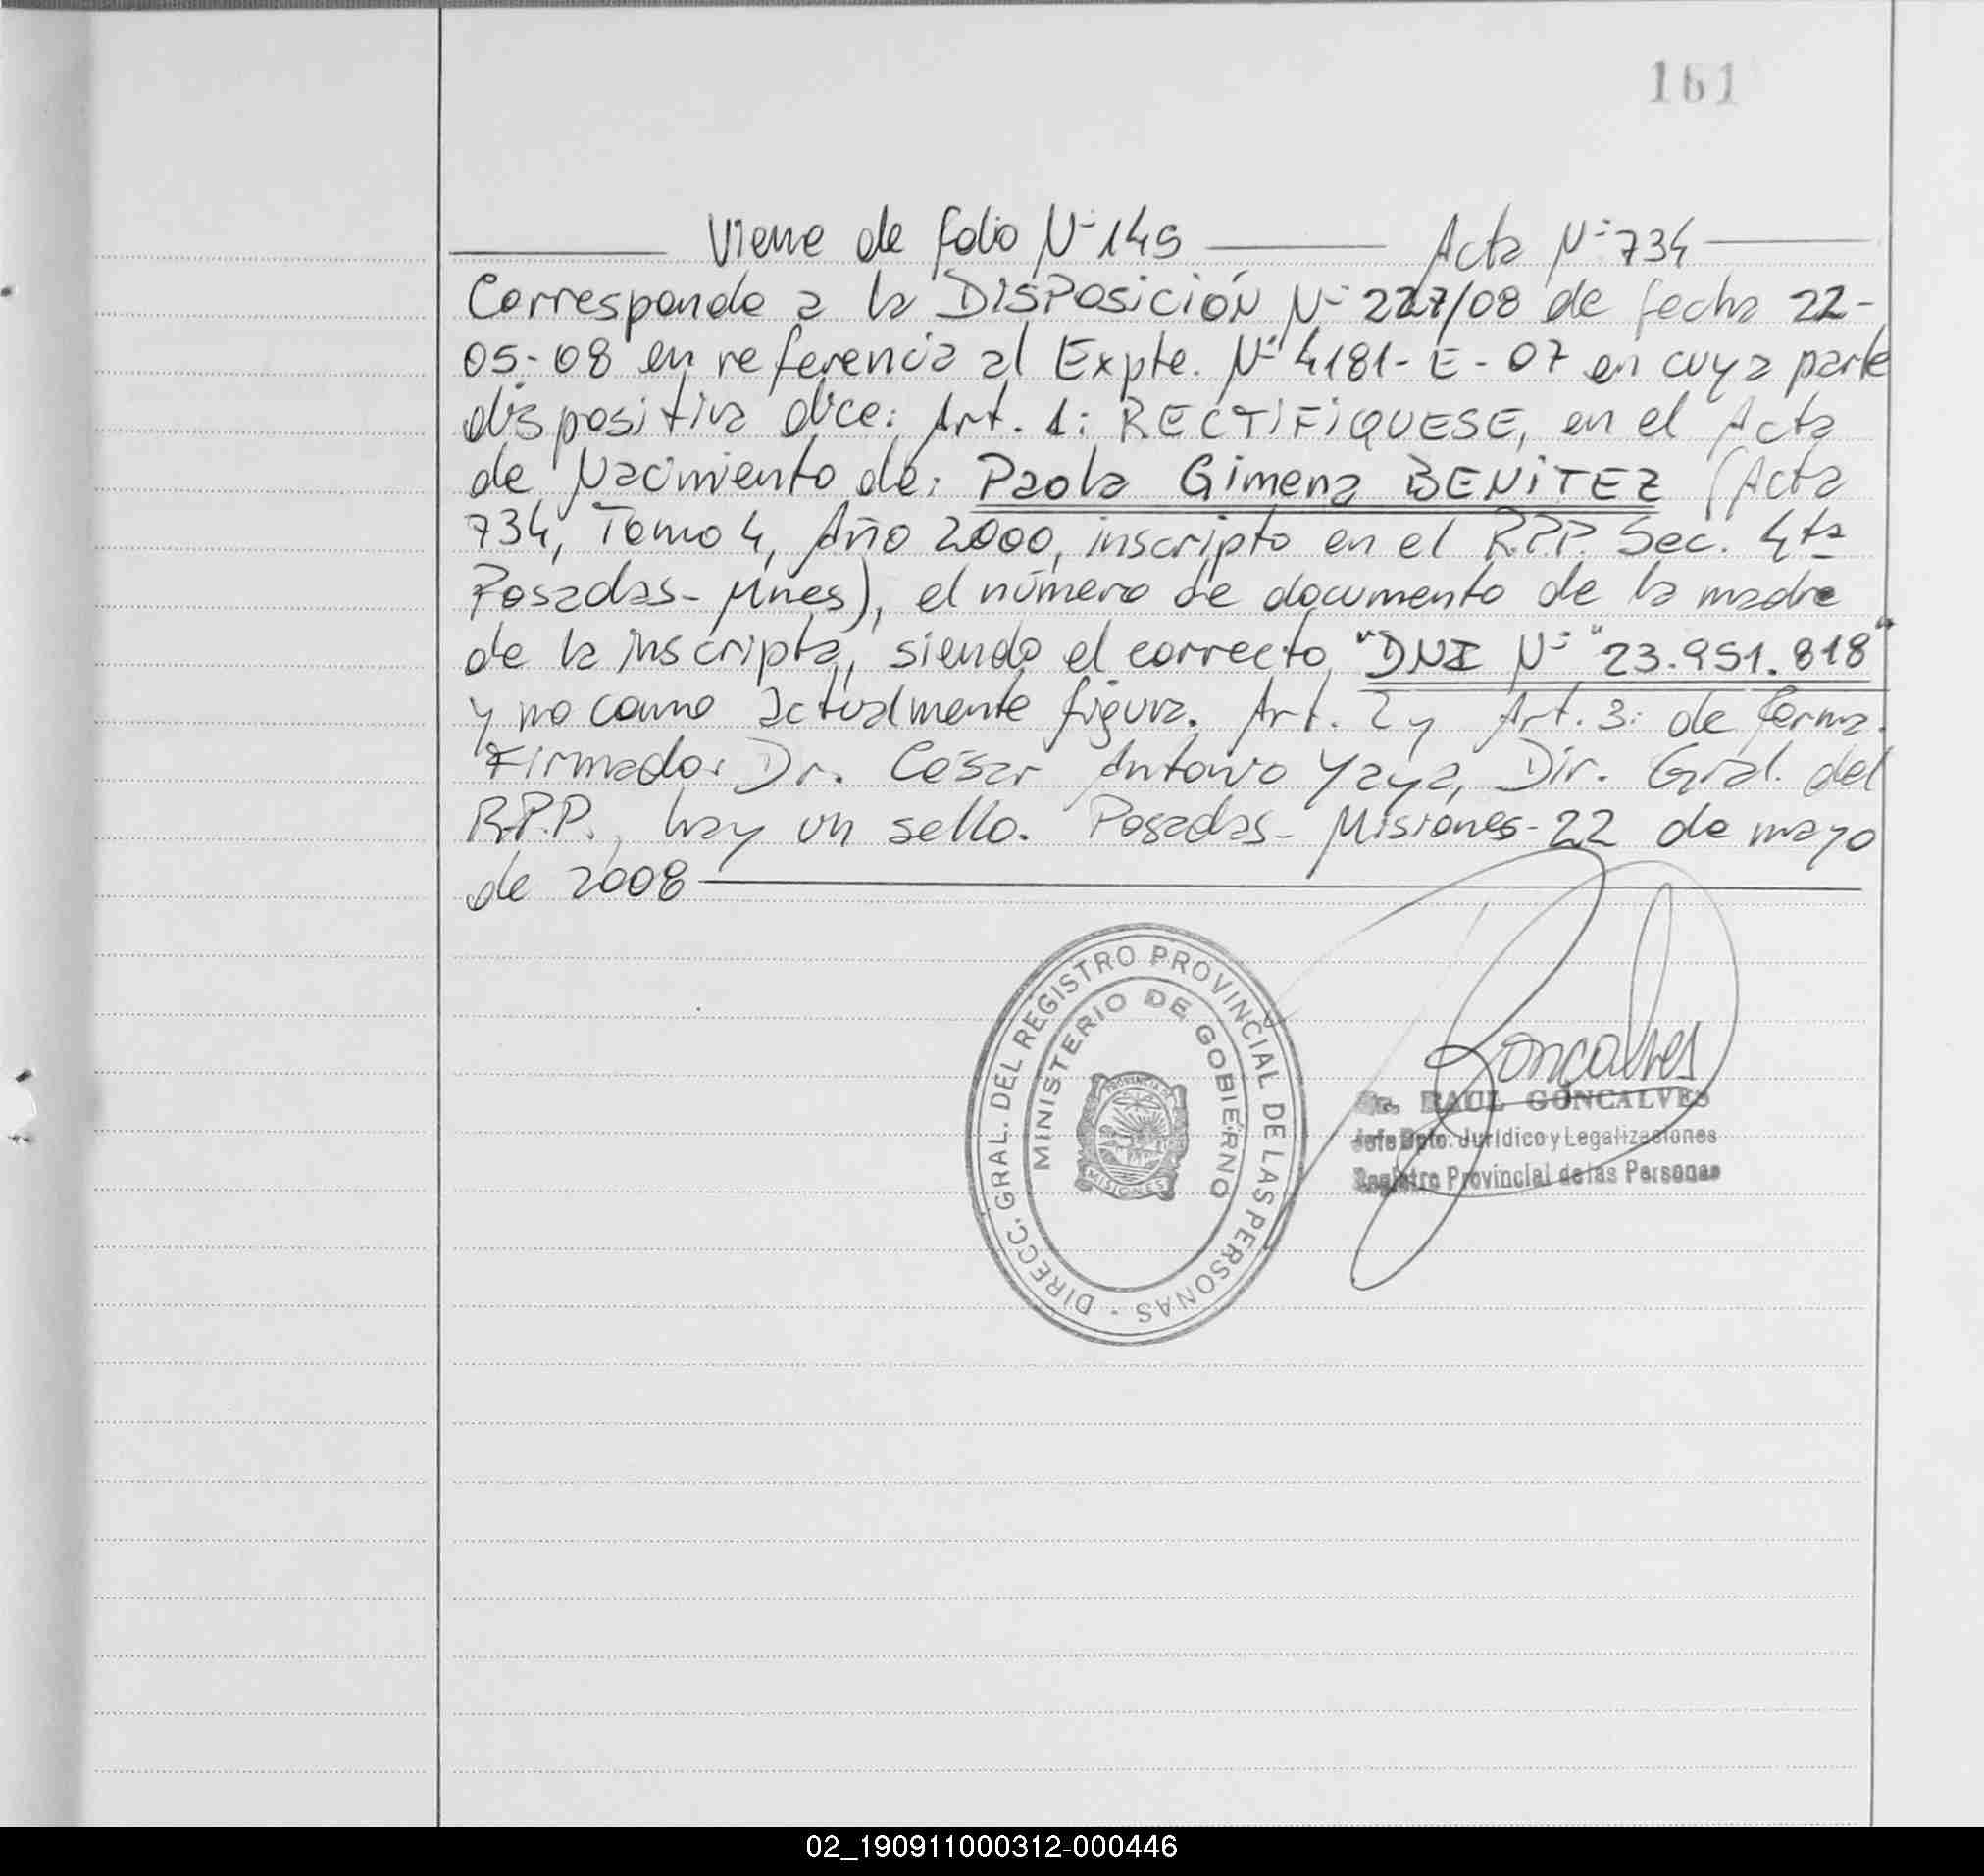 161
Viene de folio Nº 149 Acta Nº 734
Corresponde a la DISPOSICIÓN Nº 227/08 de fecha 22-
05-08 en referencia al Expte. Nº 4181-E-07 en cuya parte
dispositiva dice: Art. 1: RECTIFIQUESE, en el Acta
de Nacimiento de: Paola Gimena BENITEZ (Acta
734, Tomo 4, Año 2000, inscripto en el R.P.P. Sec. 4ta
Posadas-Mnes), el número de documento de la madre
de la inscripta, siendo el correcto "DNI Nº "23.951.818"
y no como actualmente figura. Art. 2 y Art. 3: de forma.
Firmado: Dr. César Antonio Yaya, Dir. Gral. del
R.P.P., hay un sello. Posadas-Misiones-22 de mayo
de 2008
DIRECC. GRAL. DEL REGISTRO PROVINCIAL DE LAS PERSONAS -
MINISTERIO DE GOBIERNO
PROVINCIA DE
MISIONES
Goncalves
Dr. RAUL GONCALVES
Jefe Dpto. Jurídico y Legalizaciones
Registro Provincial de las Personas
02_190911000312-000446